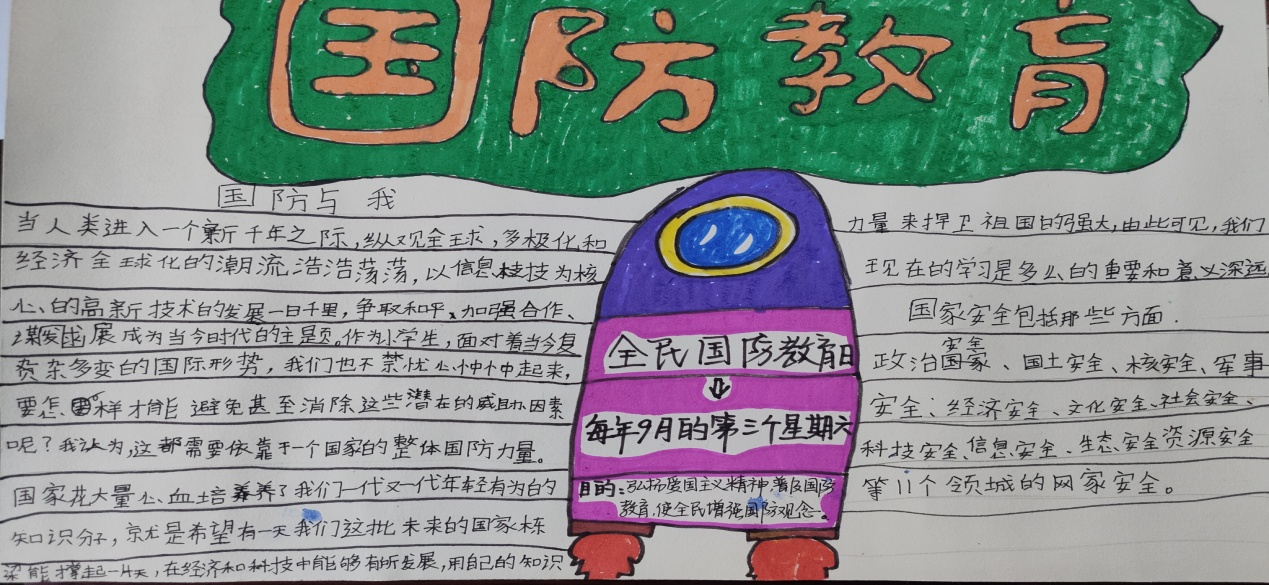 国防教育
国防与我
当人类进入一个新千年之际,纵观全球,多极化和
经济全球化的潮流浩浩荡荡,以信息技为核
心的高新技术的发展一日千里,争取和平、加强合作、
谋发展成为当今时代的主题。作为小学生,面对着当今复
杂多变的国际形势,我们也不禁忧心忡忡起来,
要怎样才能避免甚至消除这些潜在的威胁因素
呢?我认为,这都需要依靠于一个国家的整体国防力量。
国家花大量心血培养了我们一代又一代年轻有为的
知识分子,就是希望有一天我们这批未来的国家栋
梁能撑起一片天,在经济和科技中能够有所发展,用自己的知识
全民国防教育日
每年9月的第三个星期六
目的:弘扬爱国主义精神普及国防
教育,使全民增强国防观念。
力量来捍卫祖国的强大,由此可见,我们
现在的学习是多么的重要和意义深远
国家安全包括那些方面.
政治安全、国土安全、核安全、军事
安全、经济安全、文化安全、社会安全、
科技安全、信息安全、生态安全资源安全
等11个领域的网家安全。